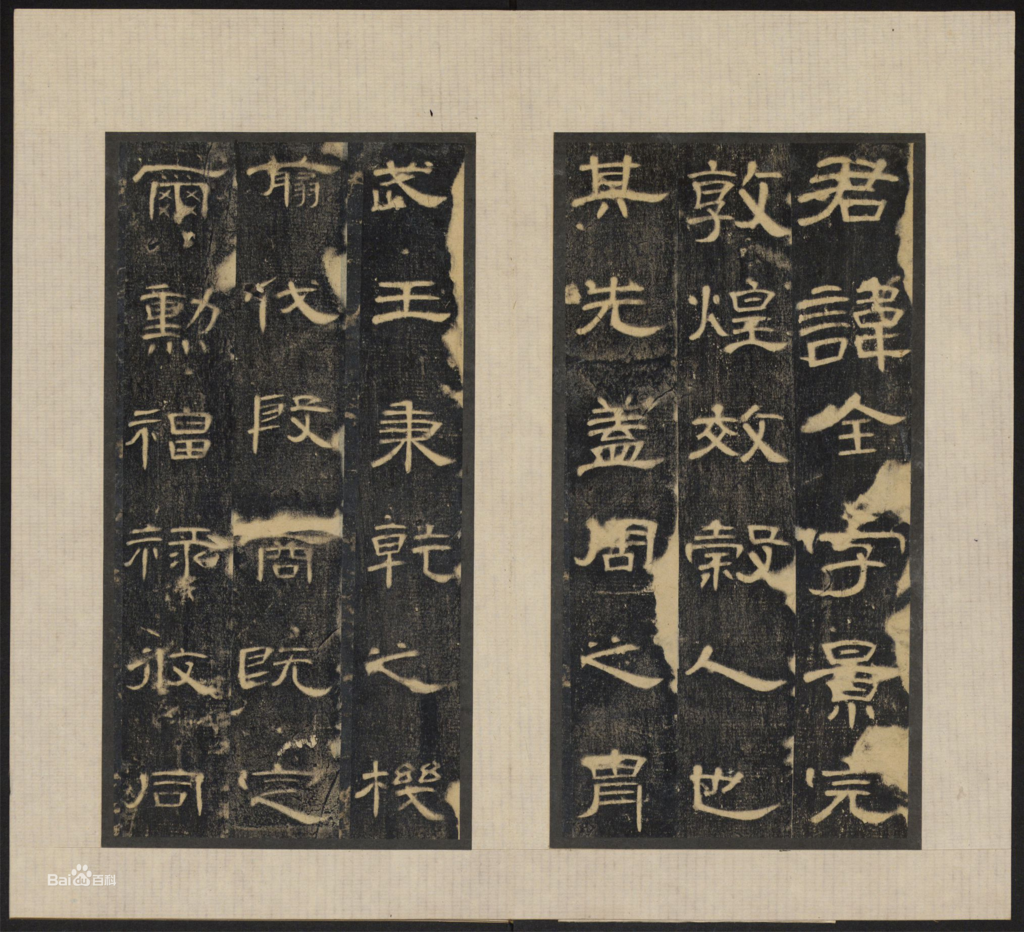 君諱全字景完
敦煌效穀人也
其先蓋周之胄
武王秉乾之機
翦伐殷商既定
爾勳福祿攸同
Baidu百科